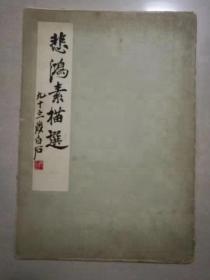 悲鴻素描選
九十三歲白石